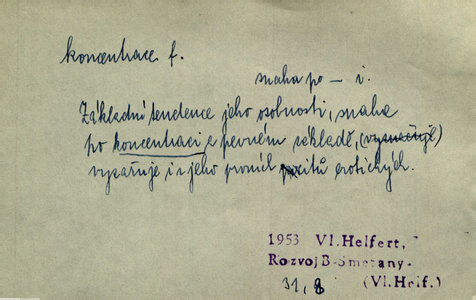 koncentrace f.
snaha po – i.
Základní tendence jeho osobnosti, snaha
po koncentraci a pevném základě, (vysvěčuje)
vyzařuje i z jeho prvních pocitů erotických.
1953 Vl.Helfert,
Rozvoj B.Smetany
31, 8 (Vl.Helf.)